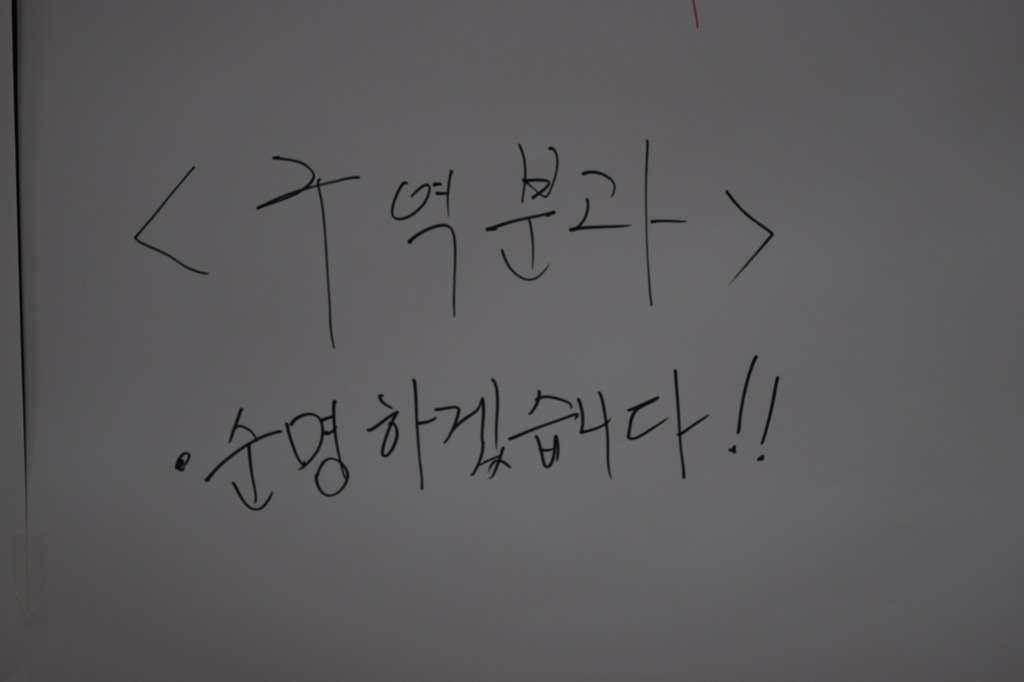 <구역분과>
· 순명하겠습니다!!